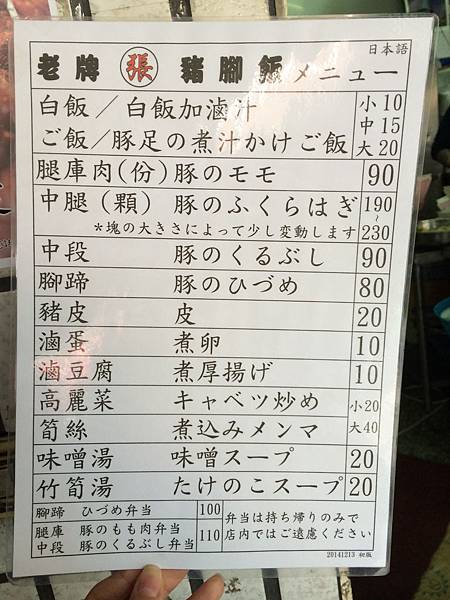 日本語
老牌 張 豬腳飯メニュー
白飯／白飯加滷汁 小10
ご飯／豚足の煮汁かけご飯 中15
大20
腿庫肉(份) 豚のモモ 90
中腿(顆) 豚のふくらはぎ 190~230
*塊の大きさによって少し変動します
中段 豚のくるぶし 90
腳蹄 豚のひづめ 80
豬皮 皮 20
滷蛋 煮卵 10
滷豆腐 煮厚揚げ 10
高麗菜 キャベツ炒め 小20
筍絲 煮込みメンマ 大40
味噌湯 味噌スープ 20
竹筍湯 たけのこスープ 20
腳蹄 ひづめ弁当 100
腿庫 豚のもも肉弁当 110
中段 豚のくるぶし弁当
弁当は持ち帰りのみで
店内ではご遠慮ください
20141213 初版